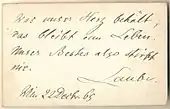 Was unser Herz behält,
das bleibt im Leben.
Unser Bestes also stirbt
nie.
Laube.
Wien 22 Decbr 65